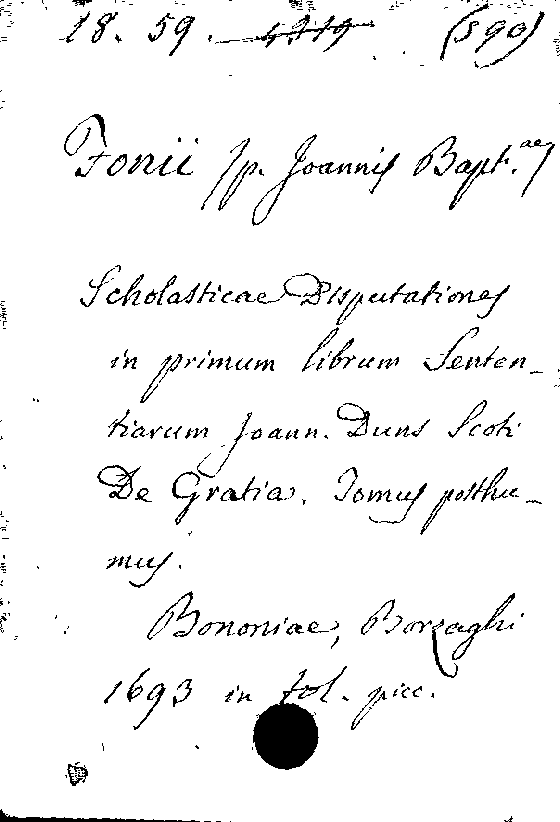 18. 59. 4319 (590)
Fonii fp. Joannis Bapt.ae
Scholasticae Disputationes
in primum librum Senten-
tiarum Joann. Duns Scoti
De Gratia. Tomus posthu-
mus.
Bononiae, Borzaghi
1693 in fol. picc.